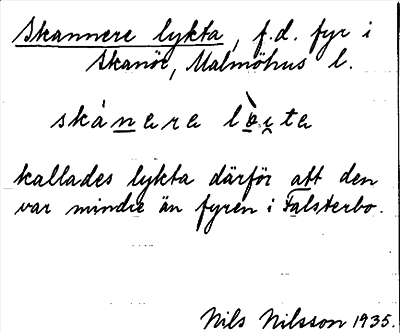 Skannere lykta, f.d. fyr i
Skanör, Malmöhus l.
skánere lò̤i̯te
kallades lykta därför att den
var mindre än fyren i Falsterbo.
Nils Nilsson 1935.